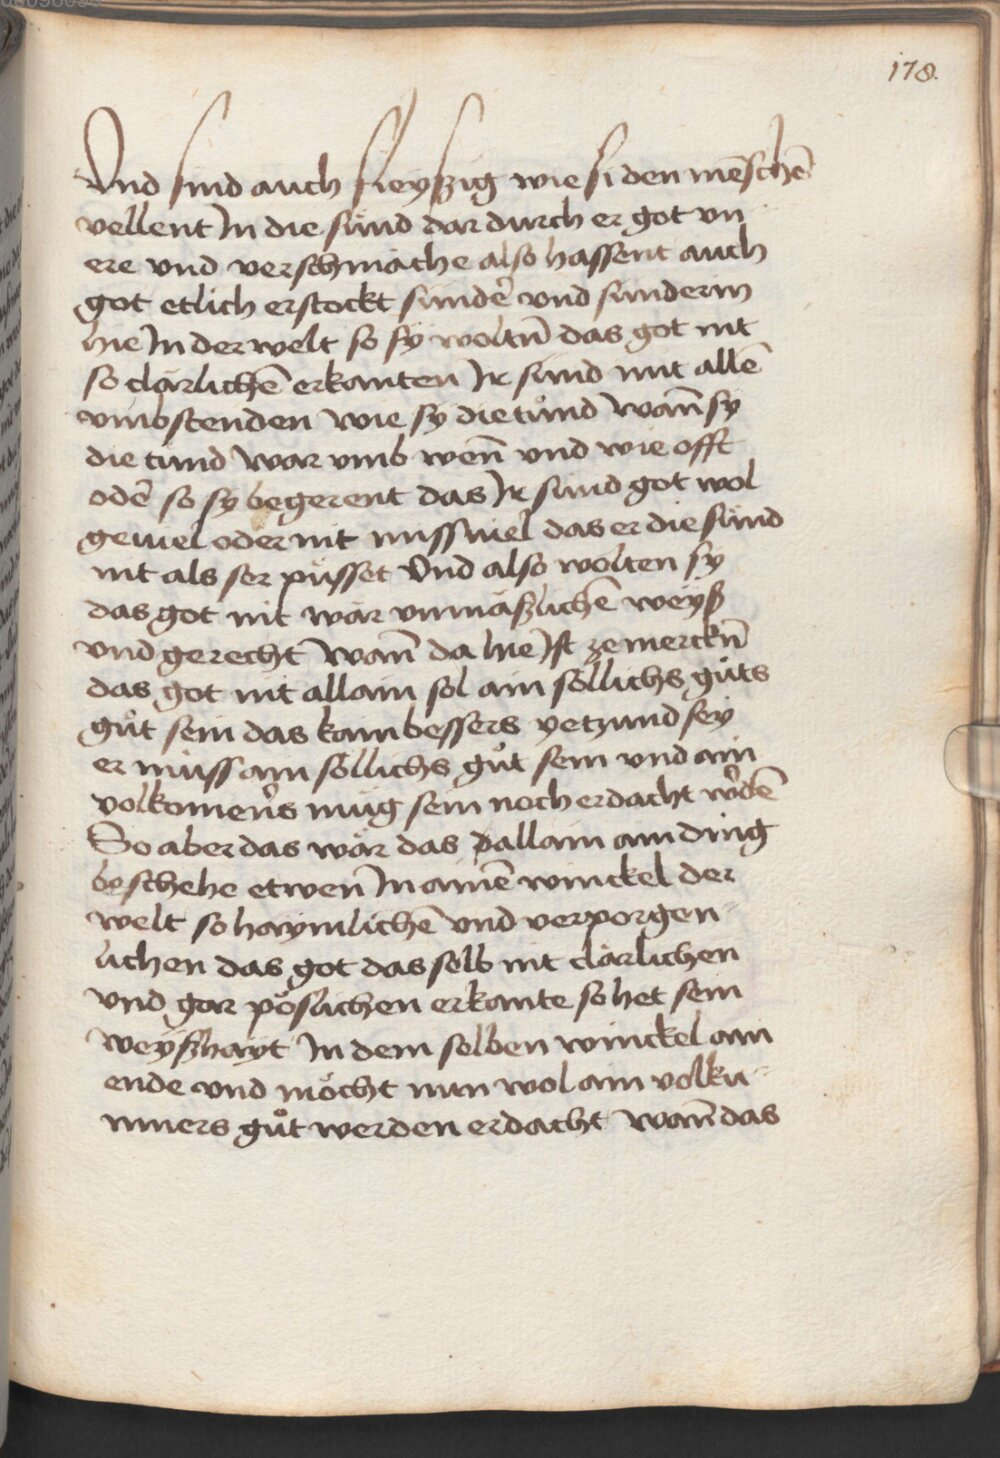 178.
Vnd sind auch fleyszig wie si den mēschē
vellent In die sünd dar durch er got vn
ere vnd verschmäche also hassent auch
got etlich erstockt sünder̄ vnd sünderin
hie In der welt so sy woltn̄ das got nit
so clärlichē erkanten Ir sünd mit allē
vmbstenden wie sy die tu̇nd wan̄ sy
die tund war vmb wen̄ vnd wie offt
odē so sy begerent das Ir sünd got wol
geuiel oder nit missuiel das er die sünd
nit als ser pu̇sset Vnd also wolten sy
das got nit wär vnmäszlichē weysz
vnd gerecht wan̄ da hie Ist ze merckn̄
das got nit allain sol ain söllichs gůts
gůt sein das kain bessers yetzund sey
er müss ain söllichs gůt sein vnd ain
volkomen̄s müg sein noch erdacht w̄dē
So aber das wär das allain ain ding
beschehe etwen̄ In ainē winckel der
welt so haymlichē vnd verporgen
lichen das got das selb nit clärlichen
vnd gar pöslichen erkante so het sein
weyszhayt In dem selben winckel ain
ende vnd möcht nun wol ain volku
mners gůt werden erdacht wan̄ das